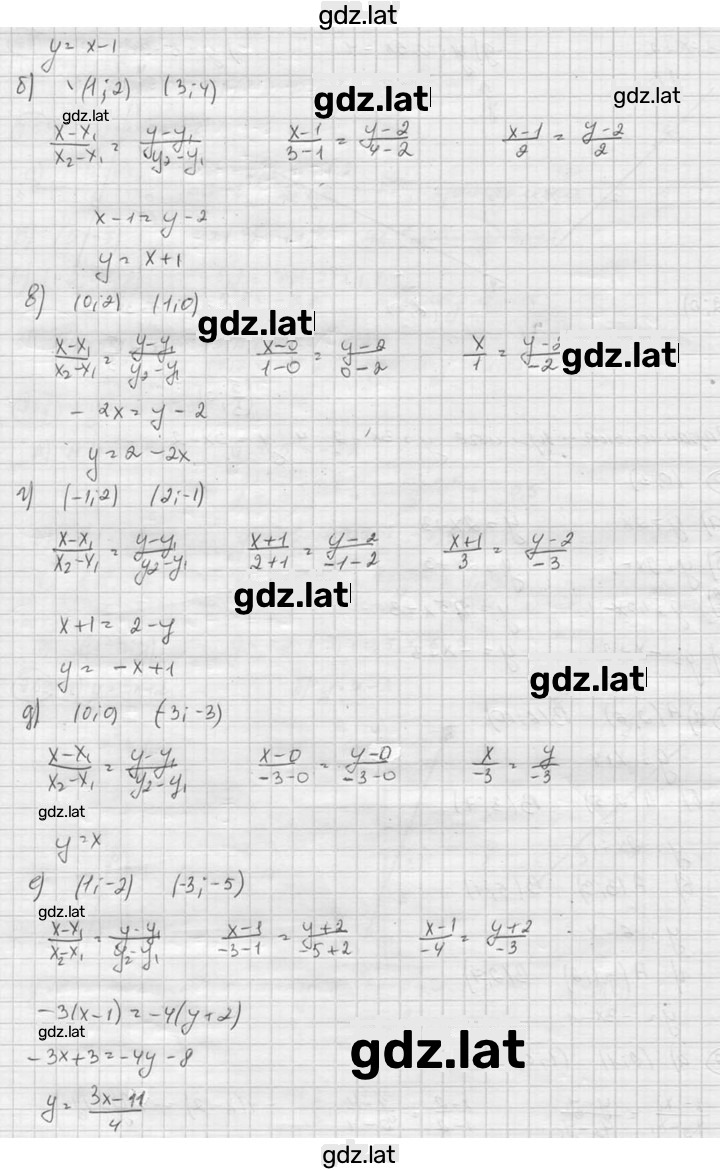 gdz.lat
y = x-1
б) (1;2) (3;4)
gdz.lat gdz.lat
gdz.lat
(x-x₁)/(x₂-x₁) = (y-y₁)/(y₂-y₁) (x-1)/(3-1) = (y-2)/(4-2) (x-1)/2 = (y-2)/2
x-1 = y-2
y = x+1
в) (0;2) (1;0)
gdz.lat
(x-x₁)/(x₂-x₁) = (y-y₁)/(y₂-y₁) (x-0)/(1-0) = (y-2)/(0-2) x/1 = (y-2)/-2 gdz.lat
- 2x = y - 2
y = 2 - 2x
г) (-1;2) (2;-1)
(x-x₁)/(x₂-x₁) = (y-y₁)/(y₂-y₁) (x+1)/(2+1) = (y-2)/(-1-2) (x+1)/3 = (y-2)/-3
gdz.lat
x+1 = 2-y
y = -x+1
gdz.lat
д) (0;0) (-3;-3)
(x-x₁)/(x₂-x₁) = (y-y₁)/(y₂-y₁) (x-0)/(-3-0) = (y-0)/(-3-0) x/-3 = y/-3
gdz.lat
y = x
е) (1;-2) (-3;-5)
gdz.lat
(x-x₁)/(x₂-x₁) = (y-y₁)/(y₂-y₁) (x-1)/(-3-1) = (y+2)/(-5+2) (x-1)/-4 = (y+2)/-3
-3(x-1) = -4(y+2)
gdz.lat
-3x+3 = -4y-8
gdz.lat
y = (3x-11)/4
gdz.lat